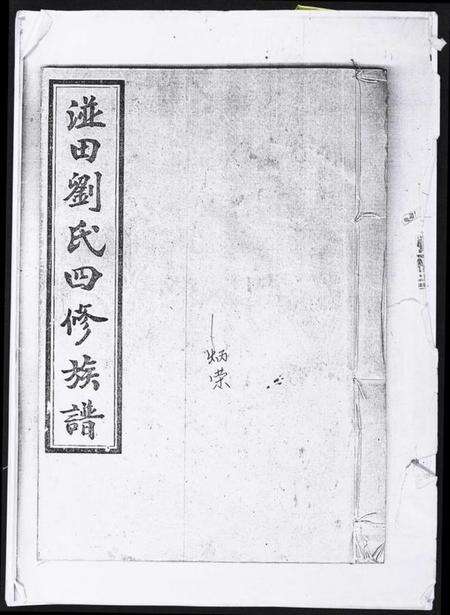 湴田劉氏四修族譜
炳荣